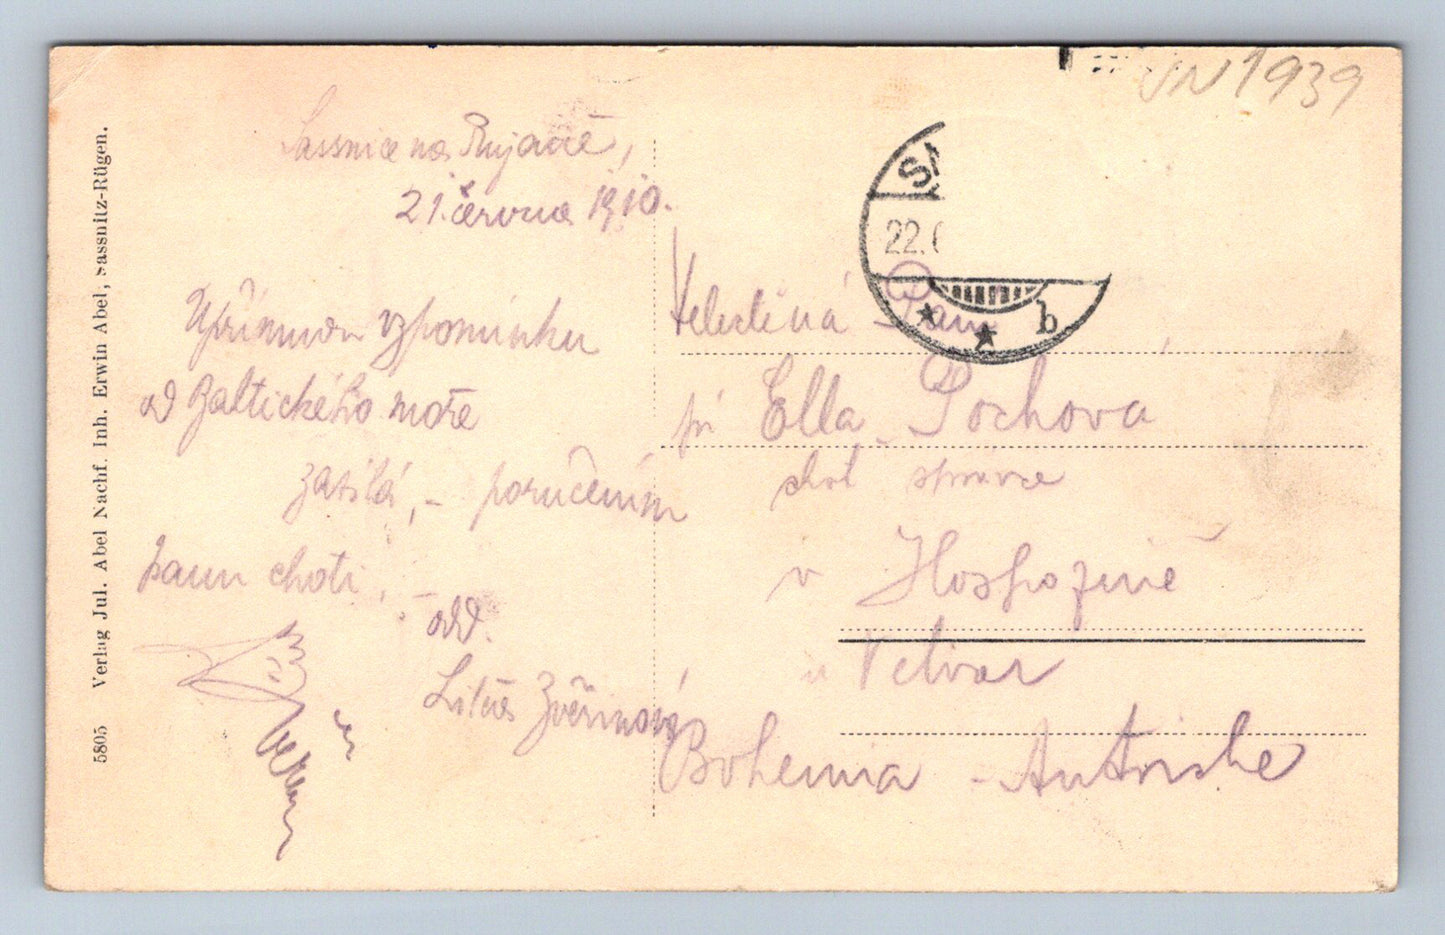 Verlag Jul. Abel Nachf. Inh. Erwin Abel, Sassnitz-Rügen.
5805
VN 1939
SA
22.
b
Sassnice na Rujaně,
21. června 1910.
Upřímnou vzpomínku
od Baltického moře
zasílá, – poručením
panu choti. –
odd.
Zvěřinová
Veledětená Paní
pí Ella Pochová
chot správce
v Hospozině
u Velvar
Bohemia - Autriche